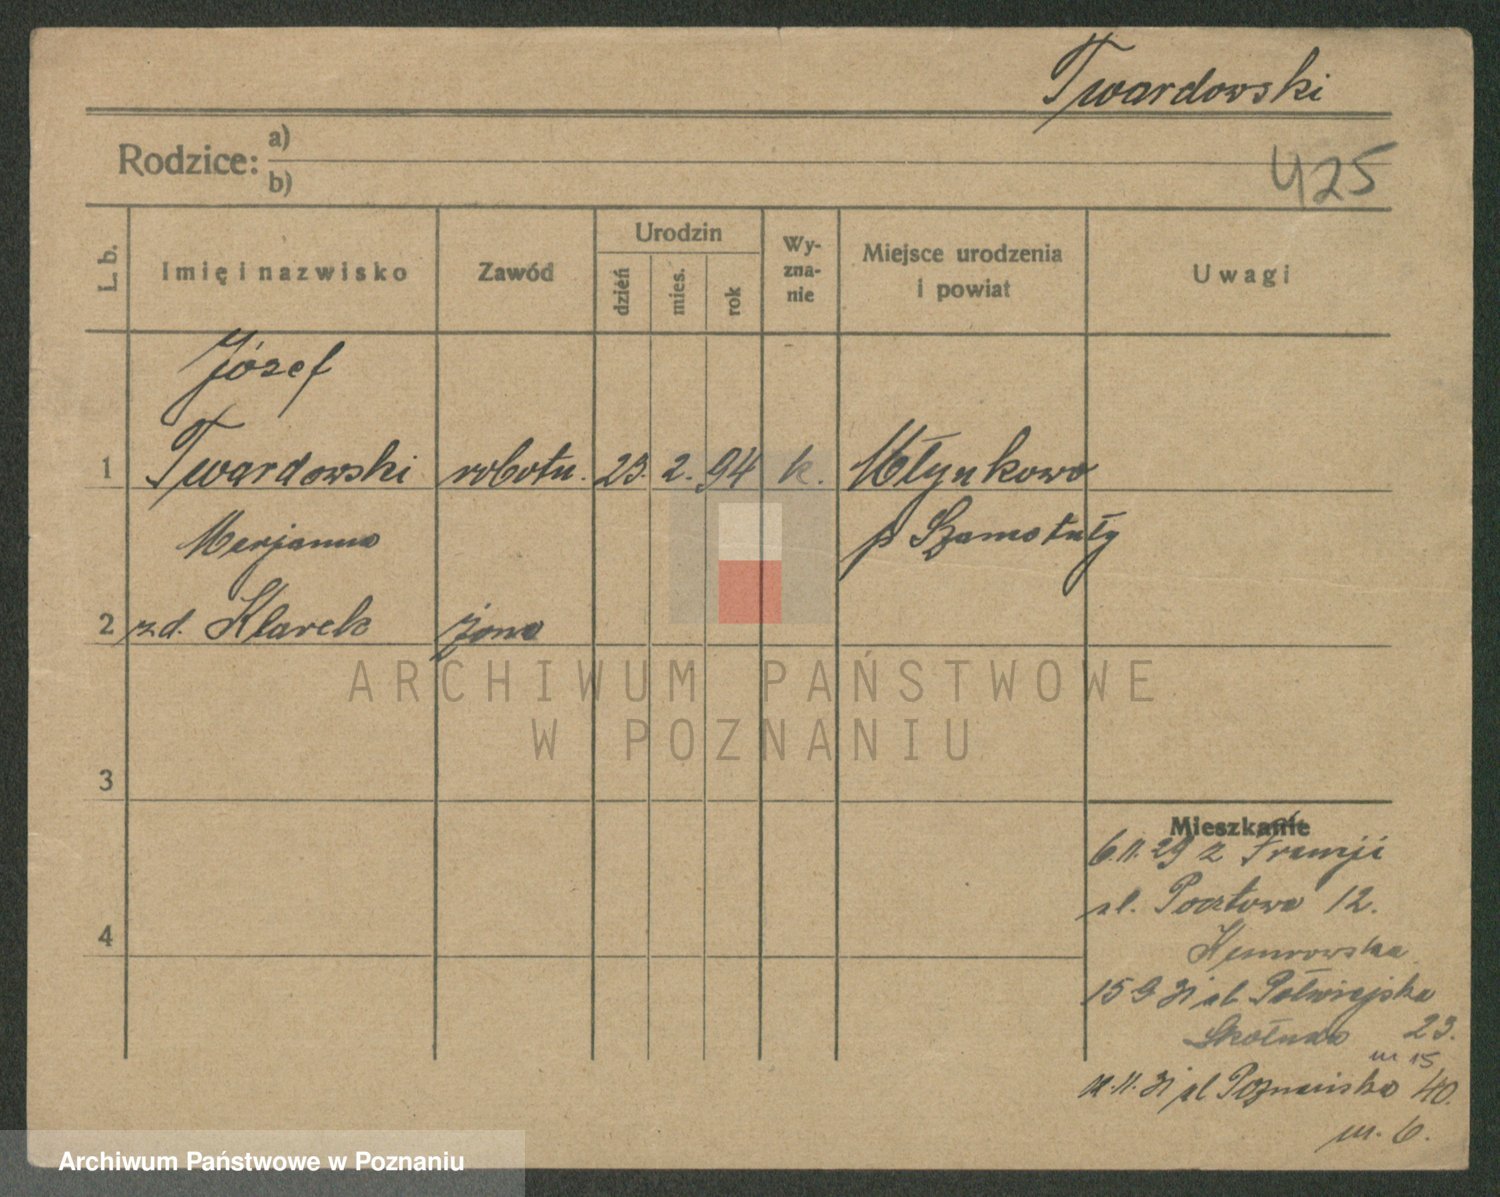 Twardowski
Rodzice: a)
b)
425
L. b.
Imię i nazwisko
Zawód
Urodzin
dzień
mies.
rok
Wy-
zna-
nie
Miejsce urodzenia
i powiat
Uwagi
Józef
1 Twardowski robotn. 23. 2. 94 k. Młynkowo
Marjanna p Szamotuły
2 z d. Klarek żona
3
4
Mieszkanie
6.11.29 z Francji
ul. Pocztowa 12.
15 9 31 ul. Półwiejska
23.
m 15
11. 31 ul Poznańska 40.
m. 6.
ARCHIWUM PAŃSTWOWE
W POZNANIU
Archiwum Państwowe w Poznaniu